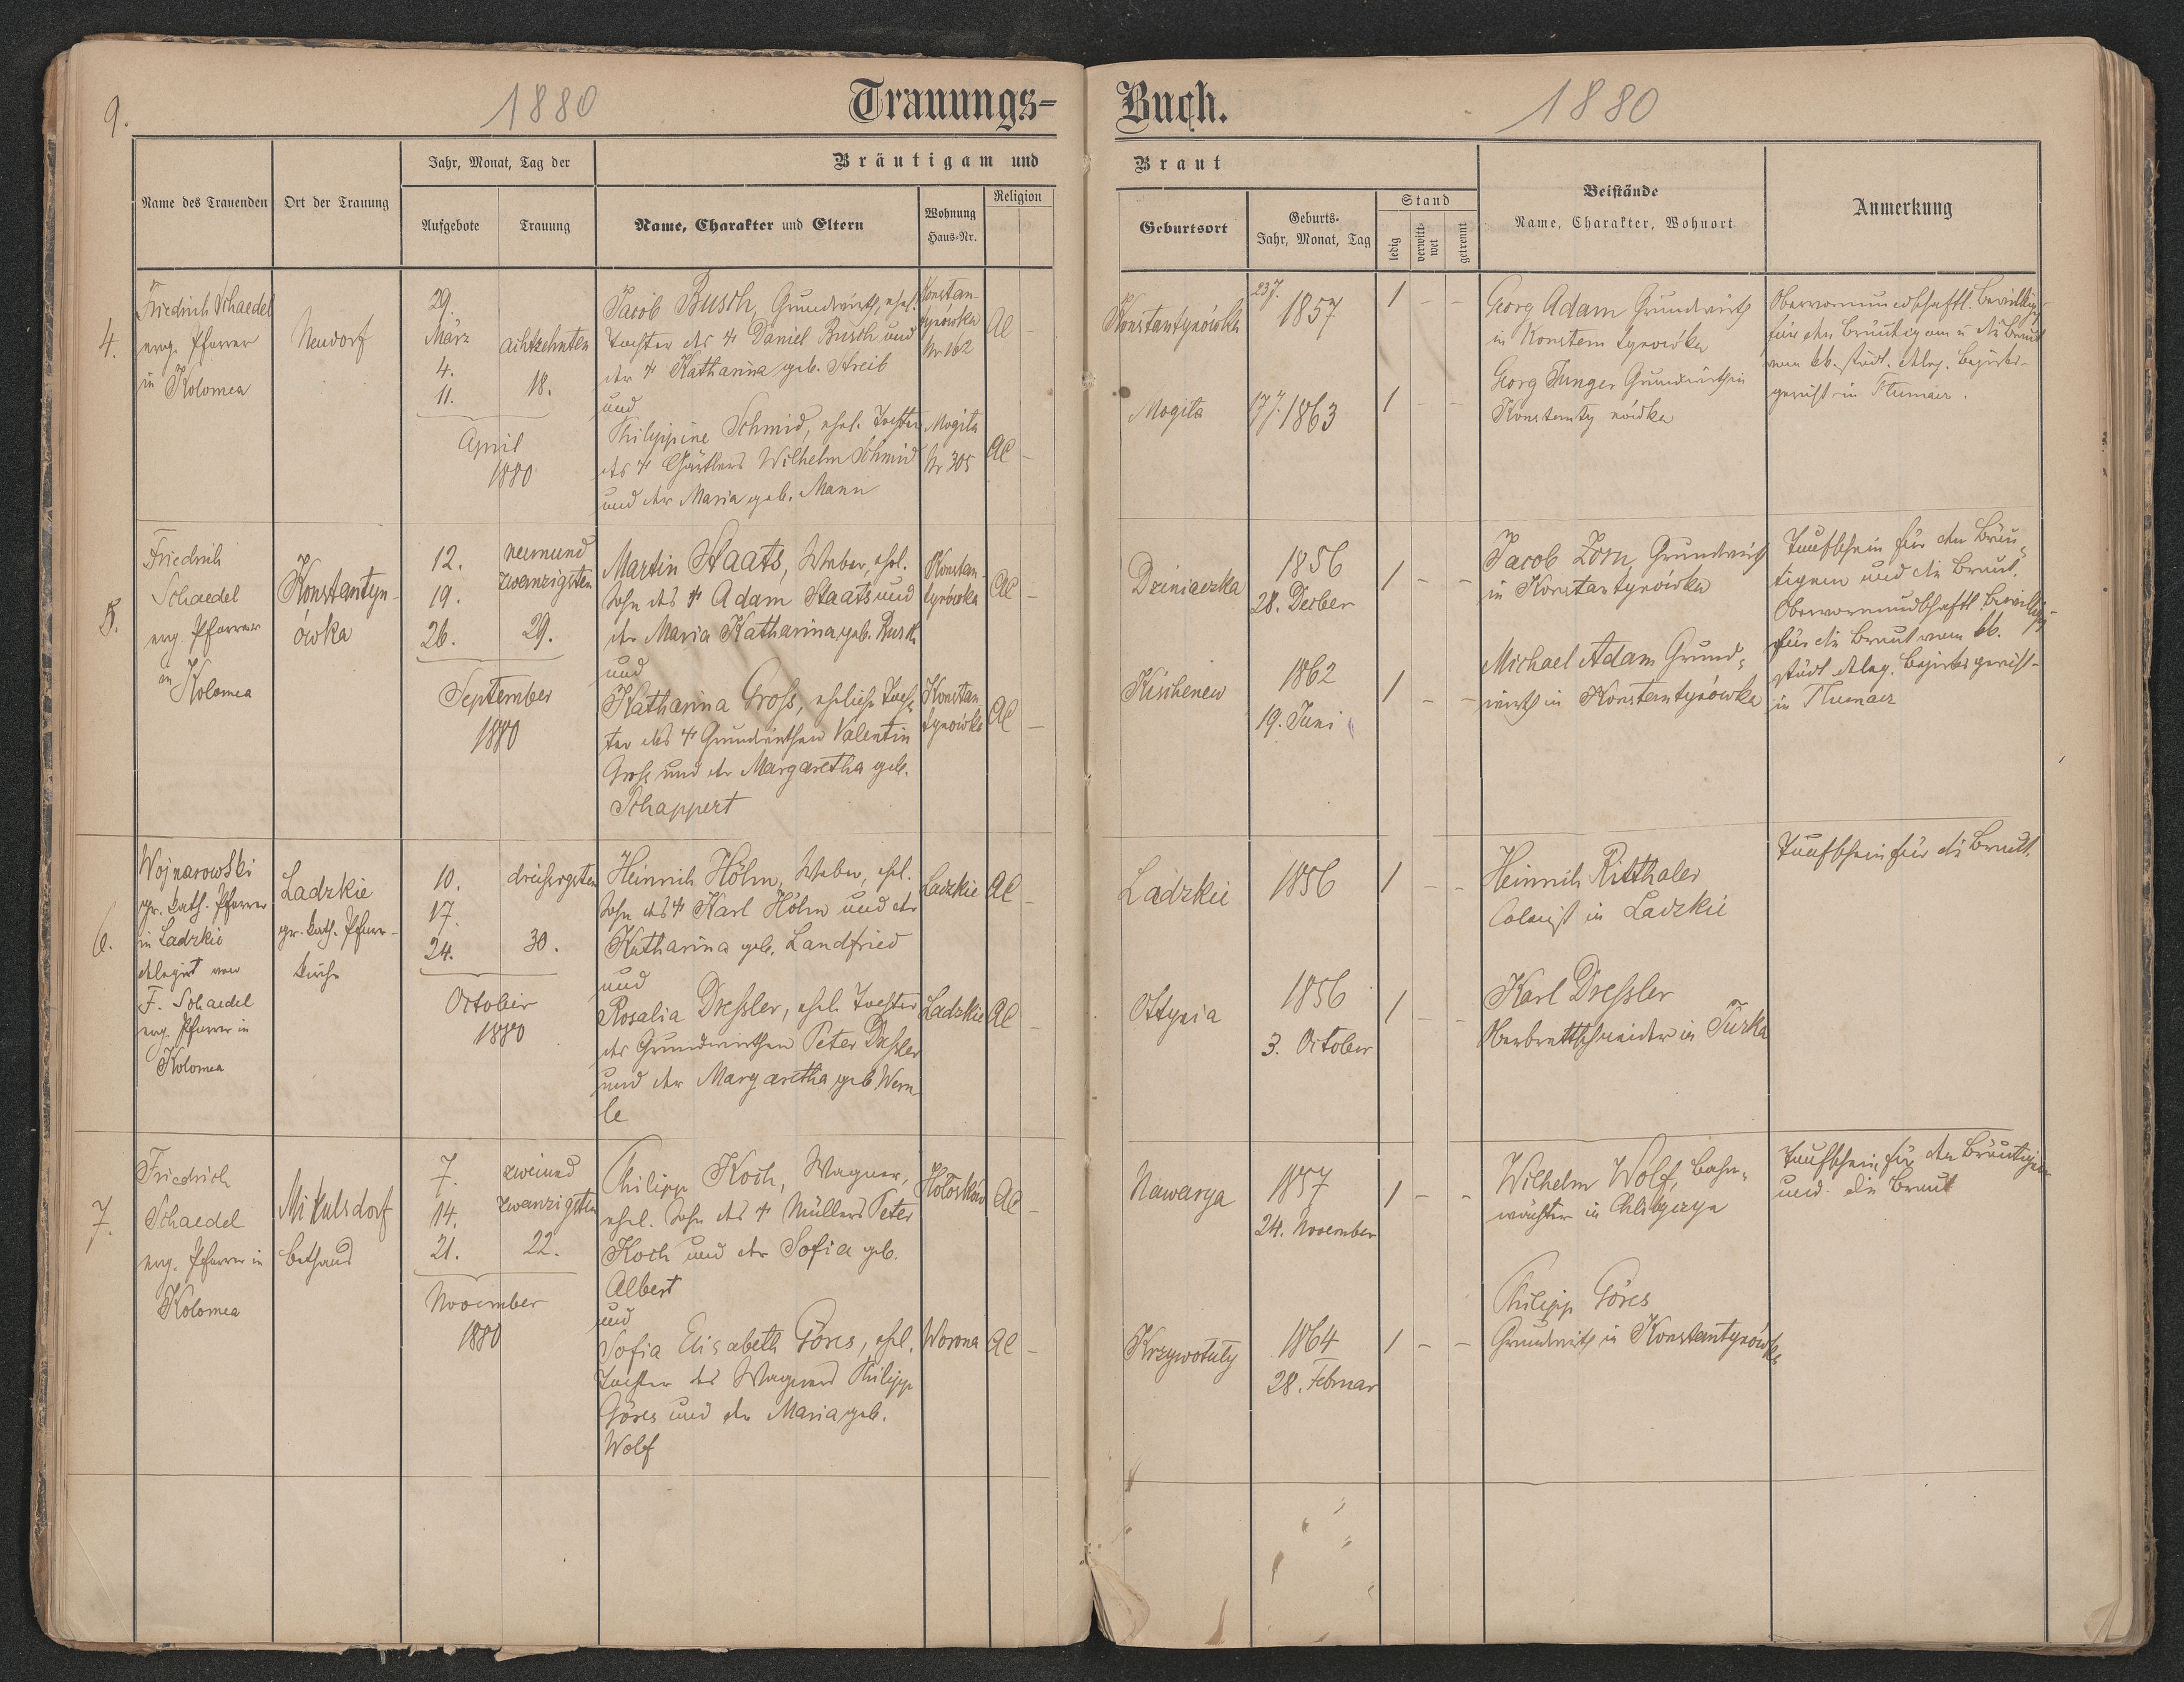 9.
1880
Trauungs-
Buch.
1880
Name des Trauenden
Ort der Trauung
Jahr, Monat, Tag der
Aufgebote
Trauung
Bräutigam und
Name, Charakter und Eltern
Wohnung
Haus-Nr.
Religion
Braut
Geburtsort
Geburts-
Jahr, Monat, Tag
Stand
ledig
verwitt-
wet
getrennt
Beistände
Name, Charakter, Wohnort
Anmerkung
4.
Friedrich Schaedel
evg. Pfarrer
in Kolomea
Neudorf
29.
März
4.
11.
April
1880
achtzehnten
18.
Jacob Busch, Grundwirth, ehel.
Tochter des † Daniel Busch und
der † Katharina geb. Streib
und
Philippine Schmid, ehel. Tochter
des † Gärtlers Wilhelm Schmid
und der Maria geb. Mann
Konstan-
tynówka
Nr 162
Mogila
Nr 305
AC –
AC –
Konstantynówka
Mogila
1857
1863
1 – –
1 – –
Georg Adam Grundwirth
in Konstantynówka
Georg Junger Grundwirth in
Konstantynówka
Obervormundschaftl. Bewillig-
für den Bräutigam u die Braut
vom kk. städt. deleg. Bezirks-
gericht in Tlumacz.
5.
Friedrich
Schaedel
evg. Pfarrer
in
Kolomea
Konstantyn-
ówka
12.
19.
26.
September
1880
neunund
zwanzigsten
29.
Martin Staats, Weber, ehel.
Sohn des † Adam Staats und
der Maria Katharina geb. Busch
und
Katharina Gross, eheliche Toch-
ter des † Grundwirthen Valentin
Gross und der Margaretha geb.
Schappert
Konstan-
tynówka
Konstan
tynówka
AC –
AC –
Dziniaczka
Kischenew
1856
28. Decber
1862
19. Juni
1 – –
1 – –
Jacob Zorn, Grundwirth
in Konstantynówka
Michael Adam Grund-
wirth in Konstantynówka
Taufschein für den Bräu-
tigam und die Braut,
Obervormundschaftl. Bewillig-
für die Braut vom kk.
städt deleg. Bezirksgericht-
in Tlumacz
6.
Wojnarowski
gr. kath. Pfarrer
in Ladzkie
delegirt von
F. Schaedel
evg. Pfarrer in
Kolomea
Ladzkie
gr. kath. Pfarr-
kirche
10.
17.
24.
October
1880
dreisigsten
30.
Heinrich Höhn, Weber, ehel.
Sohn des † Karl Höhn und der
Katharina geb. Landfried
und
Rosalia Dressler, ehel. Tochter
des Grundwirthen Peter Dressler
und der Margaretha geb. Wern-
le
Ladzkie
Ladzkie
AC –
AC –
Ladzkie
Ottynia
1856
1856
3. October
1 – –
1 – –
Heinrich Ritthaler
Colonist in Ladzkie
Karl Dressler
Oberbrettschneider in Turka
Taufschein für die Braut.
7.
Friedrich
Schaedel
evg. Pfarrer in
Kolomea
Mikulsdorf
Bethaus
7.
14.
21.
November
1880
zweiund
zwanzigsten
22.
Philipp Koch, Wagner,
ehel. Sohn des † Müllers Peter
Koch und der Sofia geb.
Albert
und
Sofia Elisabeth Göres, ehel.
Tochter des Wagners Philipp
Göres und der Maria geb.
Wolf
Holosków
Worona
AC –
AC –
Nawarya
Krzywotuly
1857
24. November
1864
28. Februar
1 – –
1 – –
Wilhelm Wolf, Bahn-
wächter in
Philipp Göres
Grundwirth in Konstantynówka
Taufschein für den Bräutigam
und die Braut